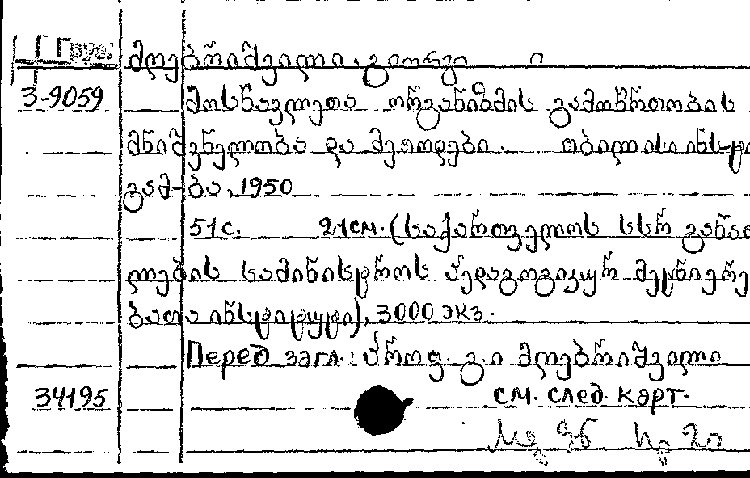 Груз. მღებრიშვილი, გიორგი
3-9059 მოსწავლეთა ორგანიზმის გამოწრთობის
მნიშვნელობა და მეთოდები. თბილისი ინსტი
გამ-ბა, 1950
51с. 21см. (საქართველოს სსრ განათ
ლების სამინისტროს პედაგოგიკურ მეცნიერე
ბათა ინსტიტუტი), 3000 экз.
Перед загл.: პროფ. გ.ი მღებრიშვილი
34195 см. след. карт.